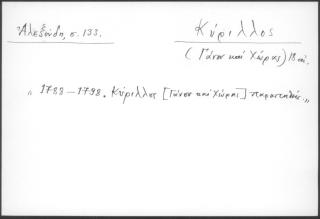 Ἀλεξούδη, σ. 133.
Κύριλλος
(Γάνου καὶ Χώρας) 18 αἰ.
„ 1788 – 1798. Κύριλλος [Γάνου καὶ Χώρας]